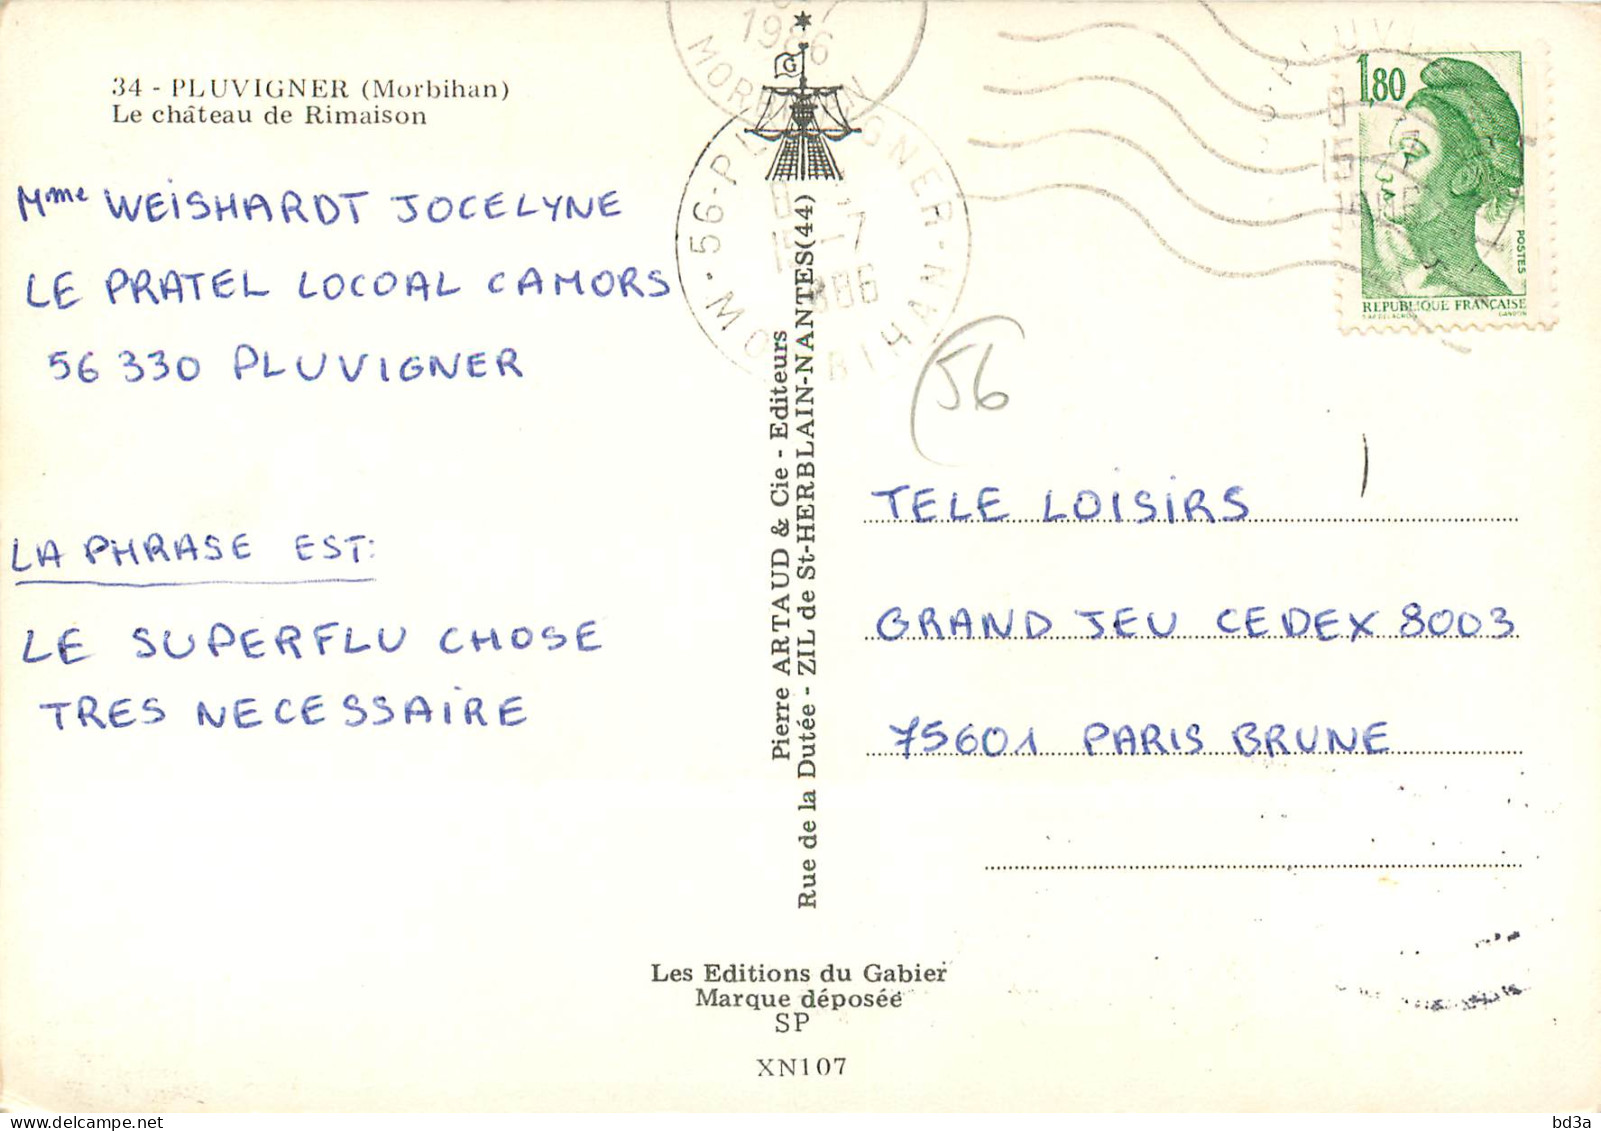 34 - PLUVIGNER (Morbihan)
Le château de Rimaison
Mme WEISHARDT JOCELYNE
LE PRATEL LOCOAL CAMORS
56 330 PLUVIGNER
LA PHRASE EST:
LE SUPERFLU CHOSE
TRES NECESSAIRE
1986
56-PLUVIGNER-MORBIHAN
15 -7
1986
G
Pierre ARTAUD & Cie - Editeurs
Rue de la Dutée - ZIL de St-HERBLAIN-NANTES(44)
1,80
POSTES
REPUBLIQUE FRANÇAISE
GANDON
56
TELE LOISIRS
GRAND JEU CEDEX 8003
75601 PARIS BRUNE
Les Editions du Gabier
Marque déposée
SP
XN107
delcampe.net
bd3a